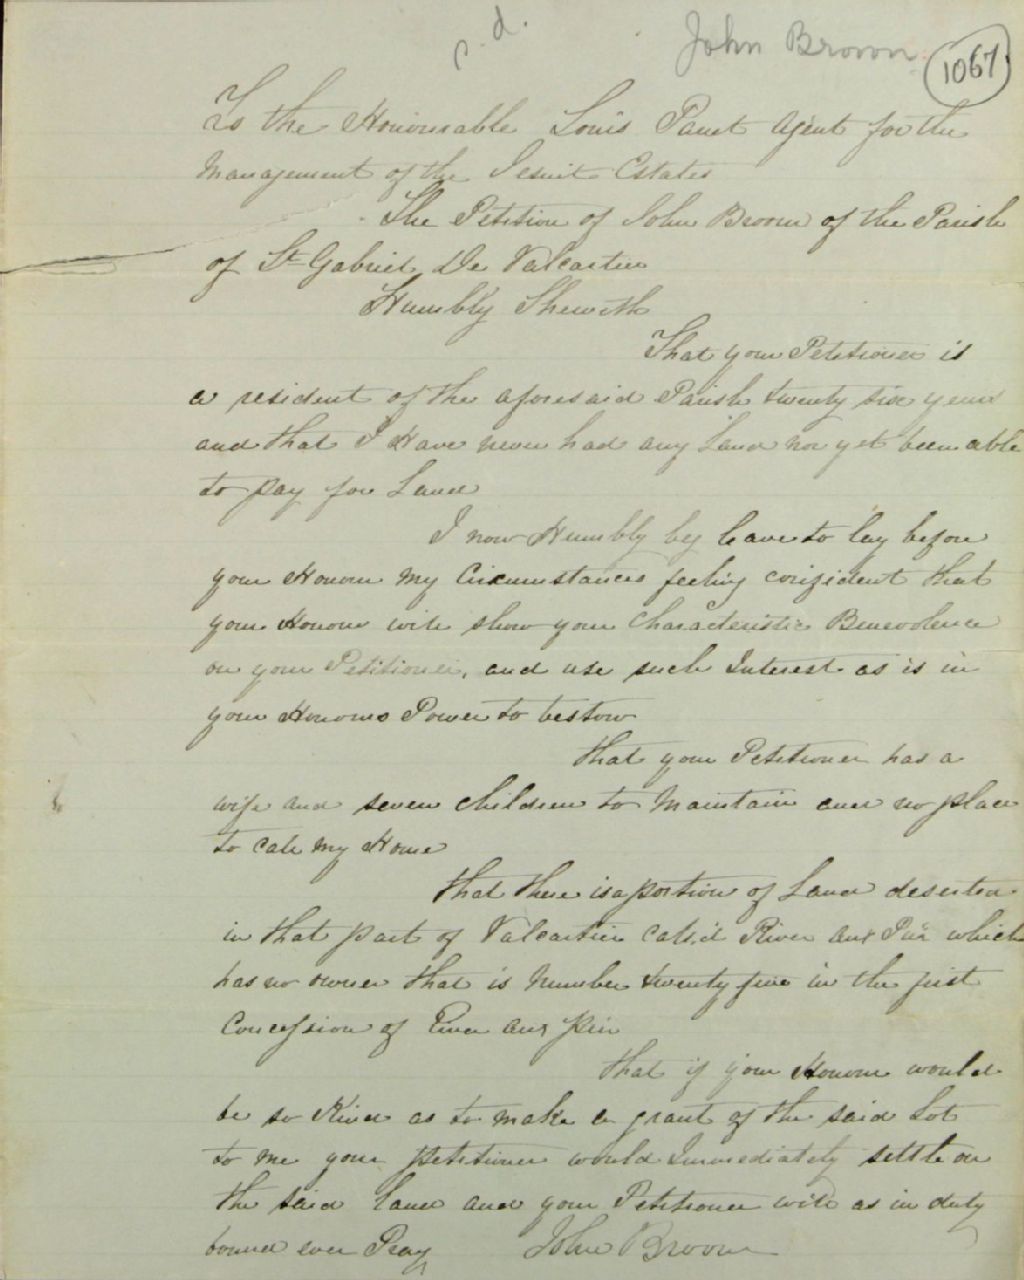 r. d. John Brown 1067
To the Honourable Louis Panet Agent for the
Management of the Jesuit Estates
The Petition of John Brown of the Parish
of St Gabriel De Valcartier
Humbly Sheweth
That your Petitioner is
a resident of the aforesaid Parish twenty six years
and that I Have never had any Land nor yet been able
to pay for Land
I now Humbly beg leave to lay before
your Honour My Circumstances feeling confident that
your Honour will show your Characteristic Benevolence
on your Petitioner, and use such Interest as is in
your Honours Power to bestow
that your Petitioner has a
wife and seven children to Maintain and no place
to call my Home
that there is a portion of Land deserted
in that part of Valcartier call'd River aux Pin which
has no owner that is Number twenty five in the first
Concession of River aux pin
that if your Honour would
be so Kind as to make a grant of the said Lot
to me your petitioner would Immediately settle on
the said land and your Petitioner will as in duty
bound ever Pray John Brown